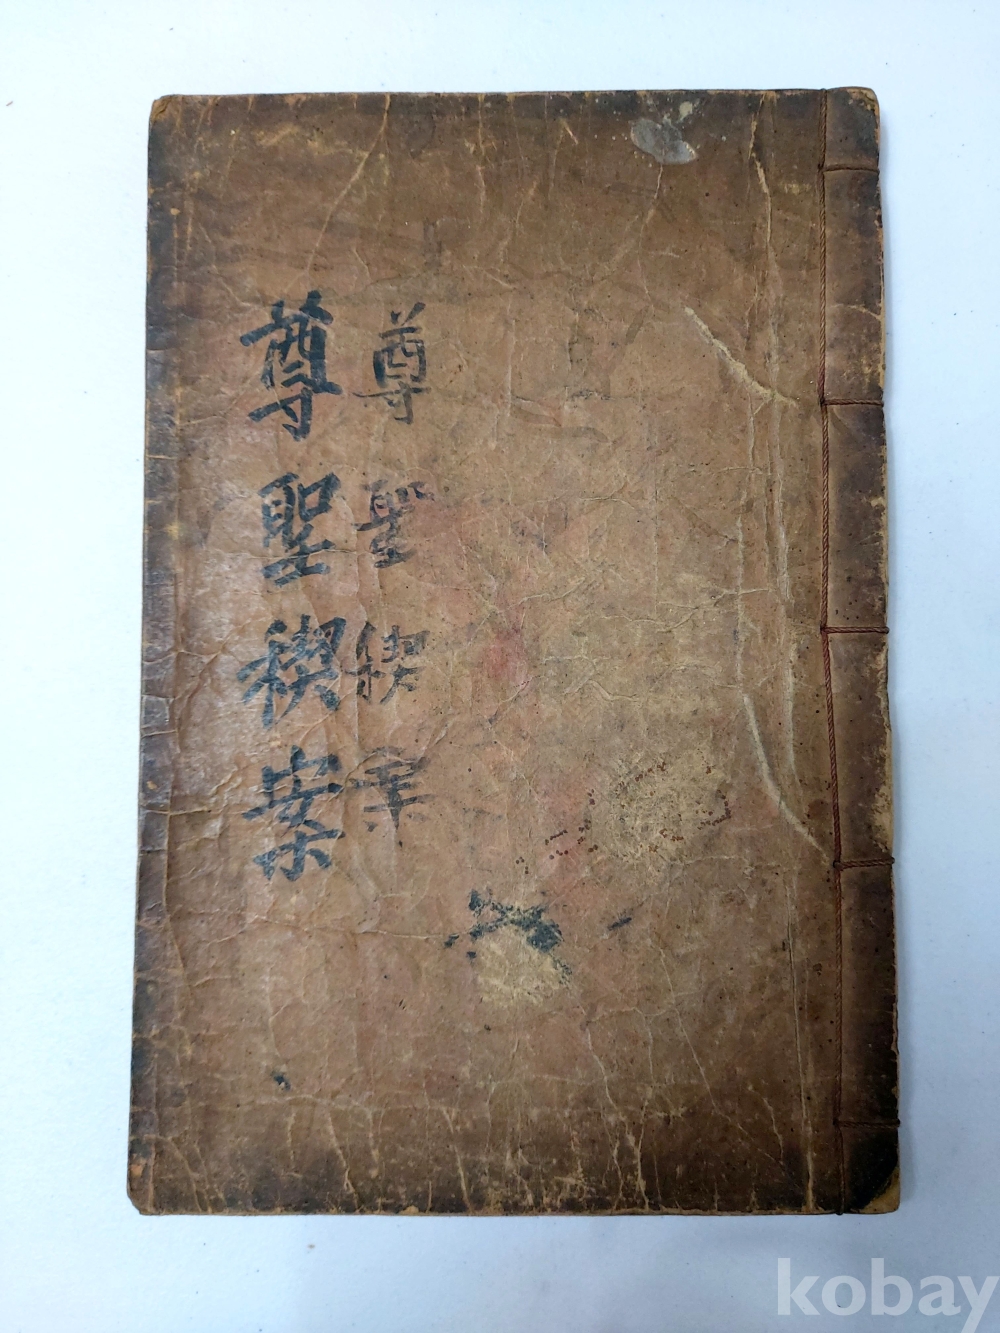 尊聖稧案
尊聖稧案
kobay